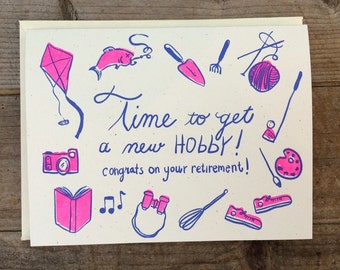 Time to get
a new HOBBY!
congrats on your retirement!